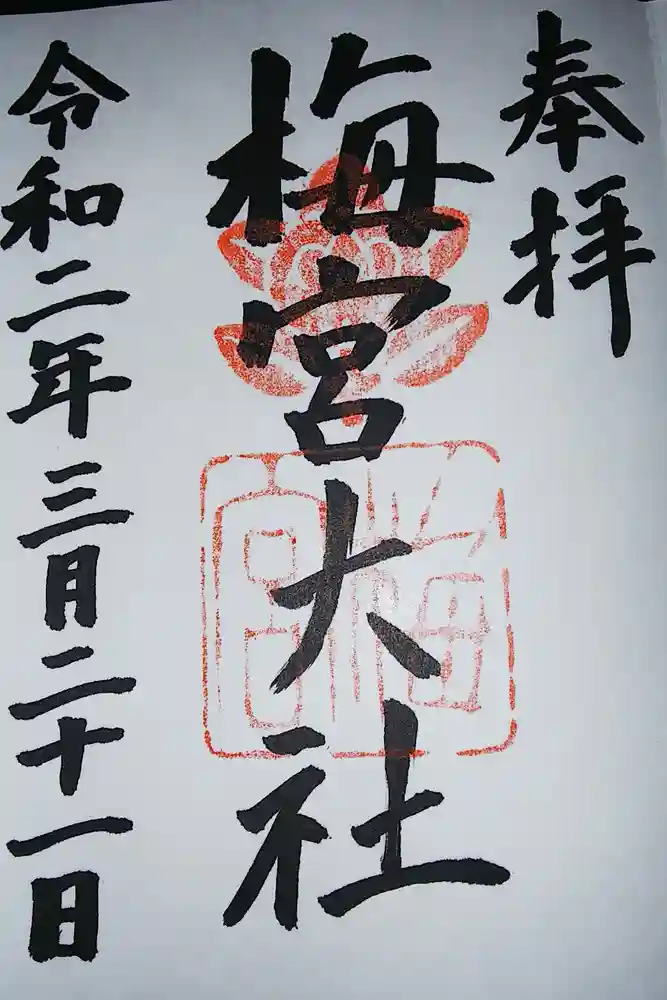 奉拝
梅宮大社
梅宮
令和二年三月二十一日